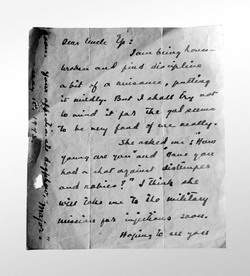 Dear Uncle
I am being house-
broken and find discipline
a bit of a nuisance, putting
it mildly. But I shall try not
to mind it for the gal seems
to be very fond of me really.
She asked me "How
young are you and have you
had a shot against distemper
and rabies?" I think she
will take me to the military
mission for injections soon.
Hoping to see you
soon, your affectionate nephew,